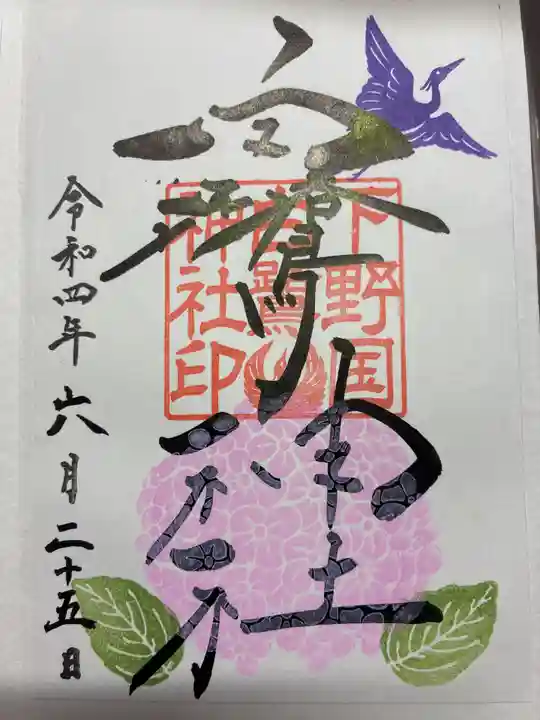 下野国
白鷺
神社印
神社
令和四年六月二十五日